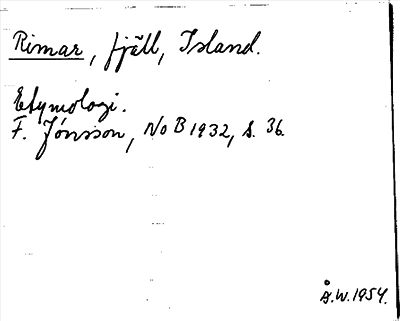 Rimar, fjäll, Island.
Etymologi.
F. Jónsson, NoB 1932, s. 36.
Å.W. 1954.